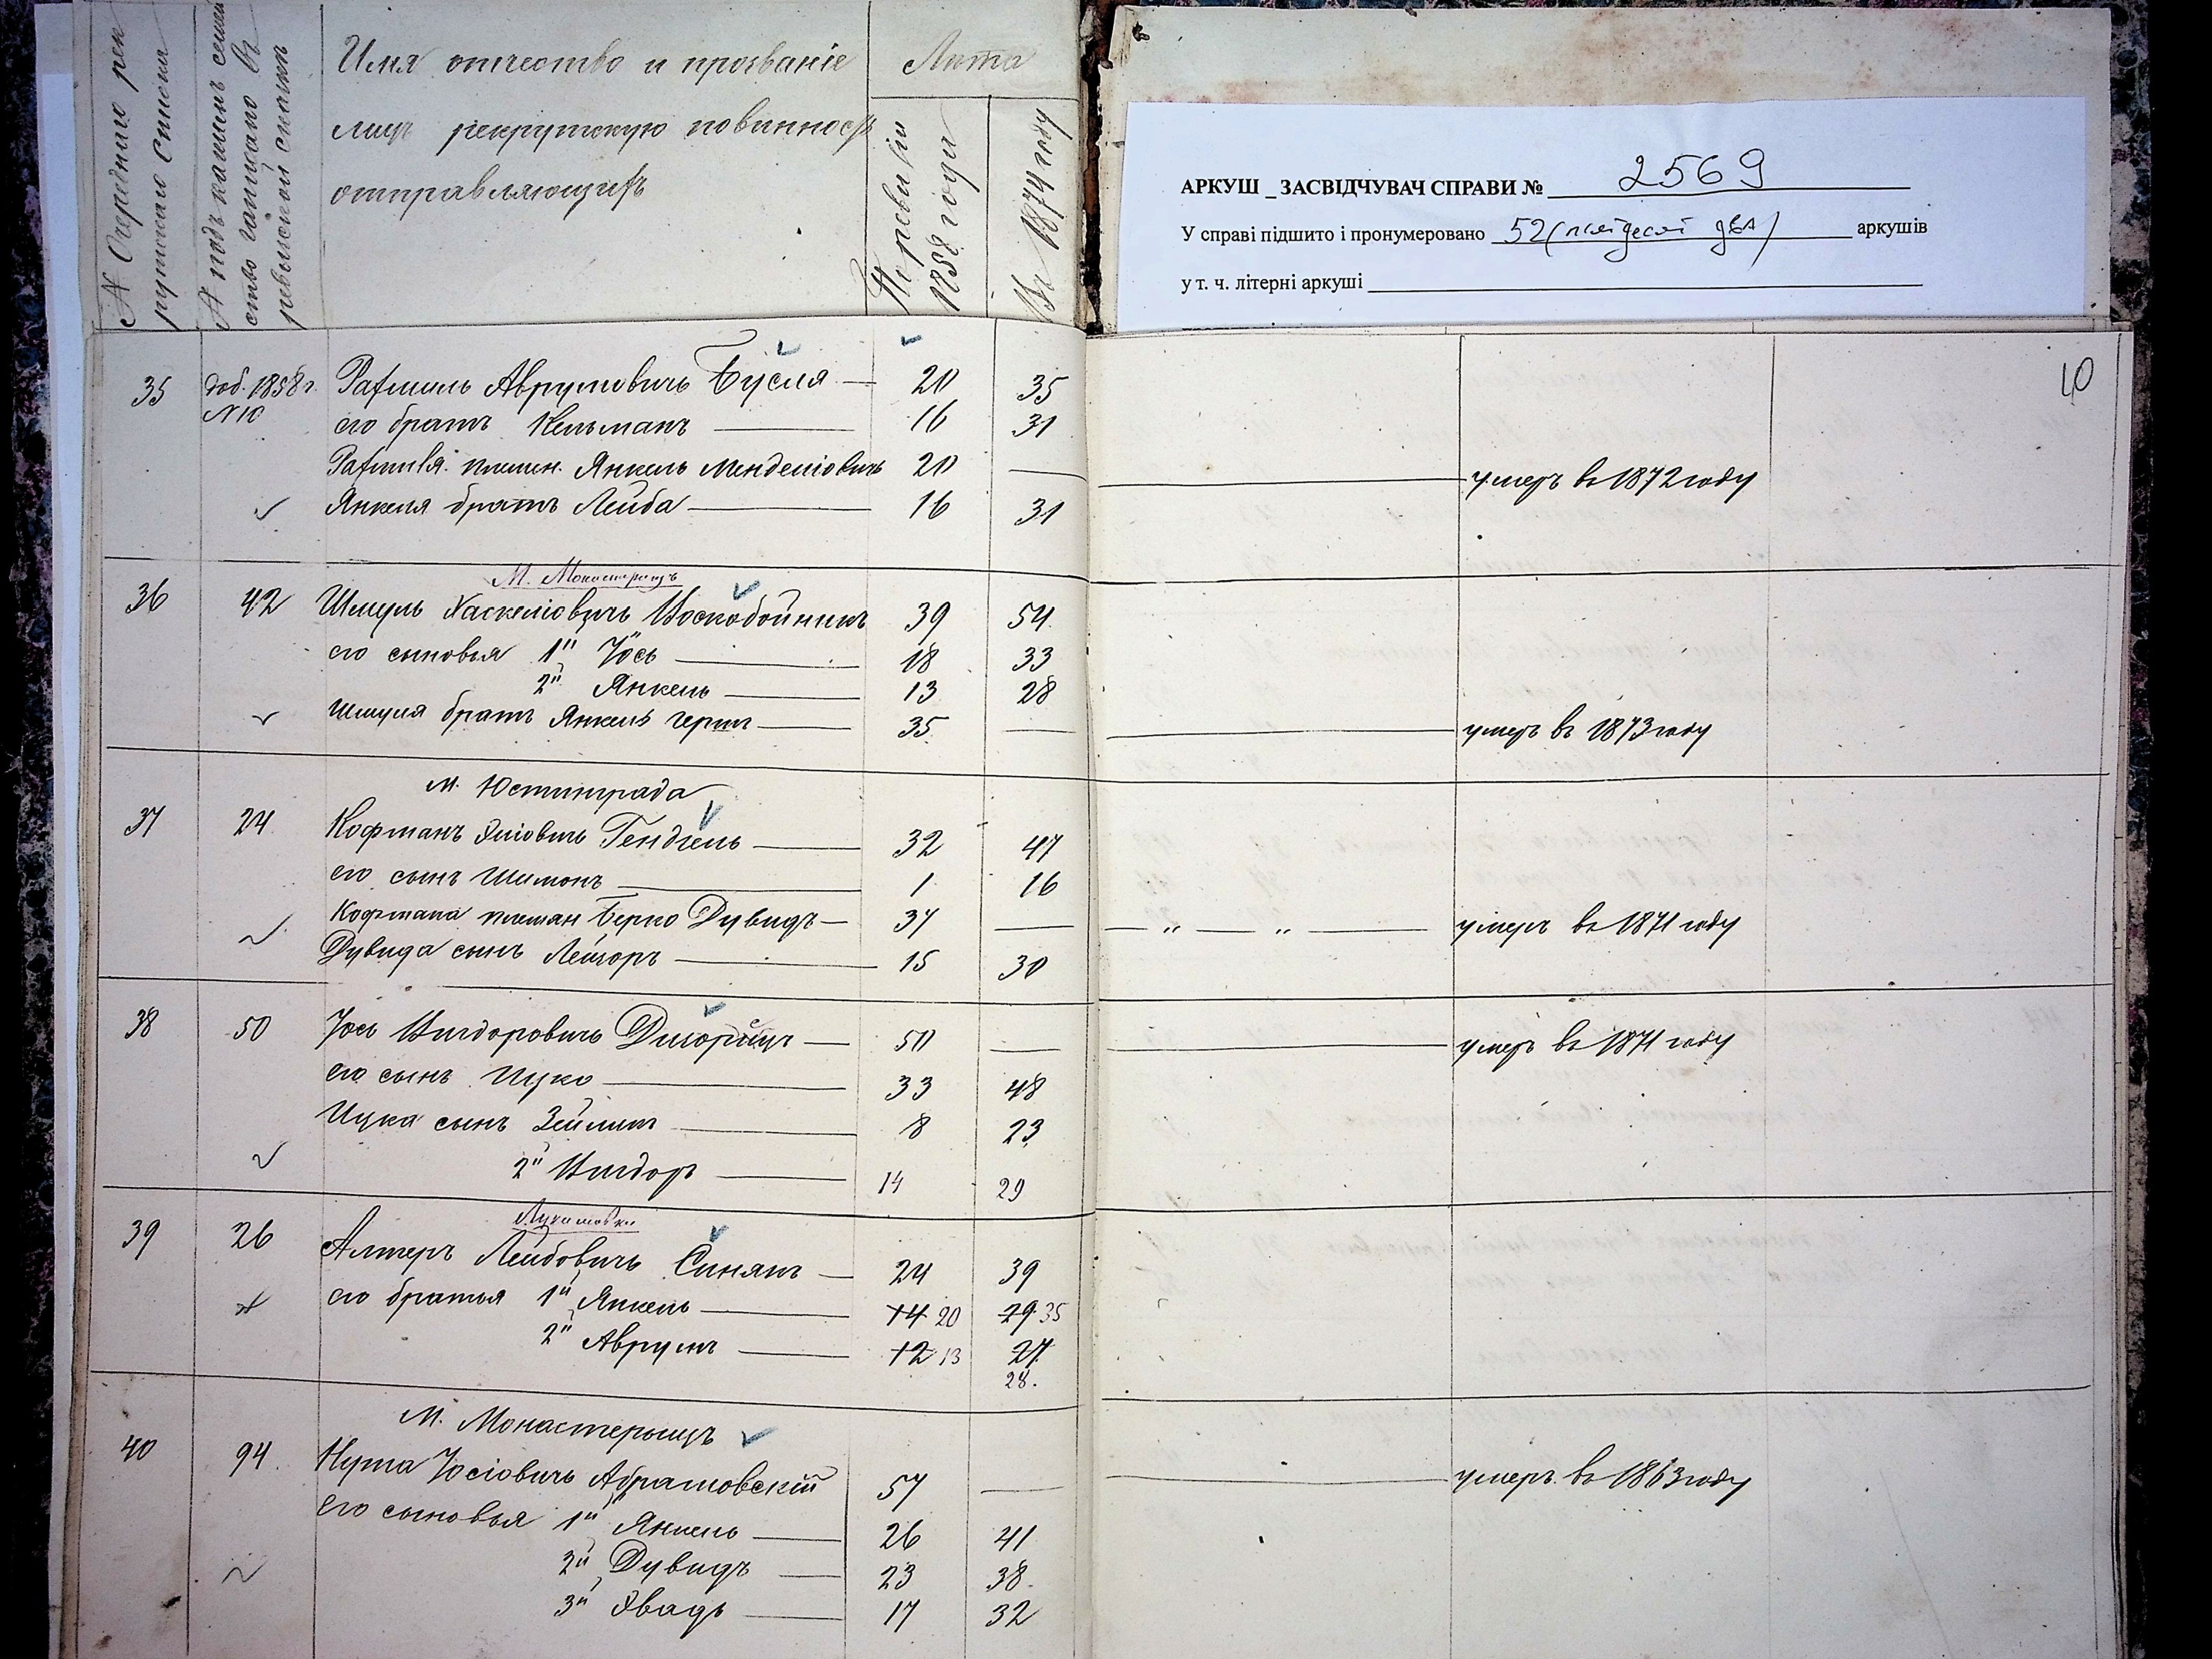 № Очереднаго рек
рутскаго Списка
№ подъ какимъ семей
ство записано въ
ревизской сказкѣ
Имя отчество и прозваніе
лицъ рекрутскую повинность
отправляющихъ
Лѣта
По ревизіи
1858 года
Въ 1874 году
АРКУШ _ ЗАСВІДЧУВАЧ СПРАВИ № 2569
У справі підшито і пронумеровано 52 (пятдесят два) аркушів
у т. ч. літерні аркуші
10
35 доб. 1858 г. Рахмиль Аврумовичъ Бусля 20 35
№ 10 его братъ Кельманъ 16 31
Рахмиля племен. Янкель Менделіовичъ 20 — умеръ въ 1872 году
Янкеля братъ Лейба 16 31
М. Монастырищъ
36 42 Шмуль Хаскеліовичъ Воскобойникъ 39 54
его сыновья 1й Іось 18 33
2й Янкель 13 28
Шмуля братъ Янкель Герш 35 — умеръ въ 1873 году
М. Юстинграда
37 24 Кофманъ Эліовичъ Гендзель 32 47
его сынъ Шимонъ 1 16
Кофмана племян Берко Дувидъ 37 — „ — „ — умеръ въ 1871 году
Дувида сынъ Лейзоръ 15 30
38 50 Іось Вигдоровичъ 50 — умеръ въ 1871 году
его сынъ Ицко 33 48
Ицка сынъ Зейлик 8 23
2й Вигдоръ 14 29
Лукашовки
39 26 Алтеръ Лейбовичъ Синякъ 24 39
его братья 1й Янкель 14 20 29 35
2й Аврумъ 12 13 27
28.
М. Монастерыщъ
40 94 Нута Іосіовичъ Абрамовскій 57 — умеръ въ 1863 году
Его сыновья 1й Янкель 26 41
2й Дувидъ 23 38
3й Эвадь 17 32